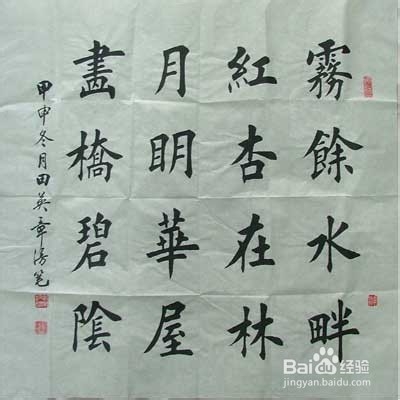 霧餘水畔
紅杏在林
月明華屋
畫橋碧陰
甲申冬月田英章漫笔
Bai 经验
jingyan.baidu.com